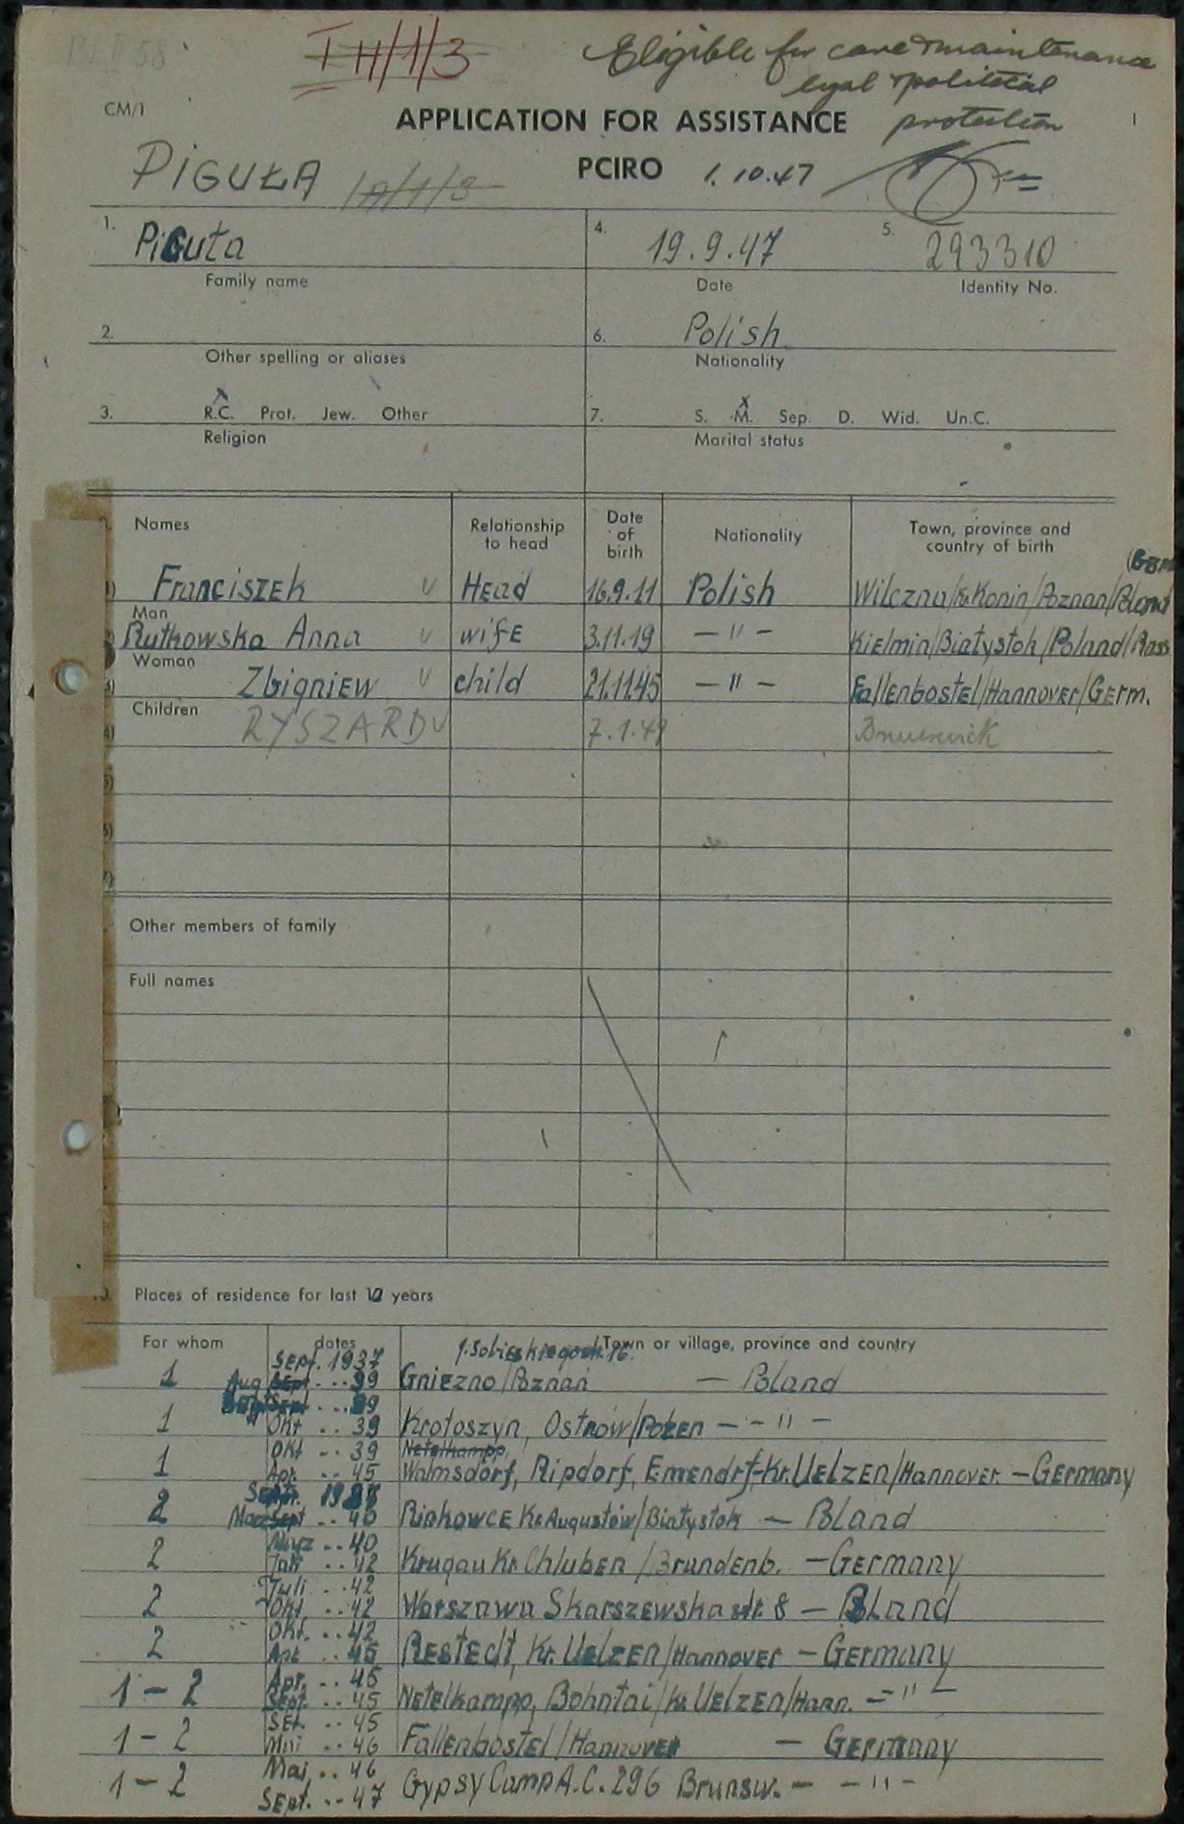 III/1/3
Eligible for care & maintenance
legal & political
protection
CM/1
APPLICATION FOR ASSISTANCE
PIGUŁA
PCIRO 1.10.47
1. Piguła 4. 19.9.47 5. 293310
Family name Date Identity No.
2. 6. Polish
Other spelling or aliases Nationality
x x
3. R.C. Prot. Jew. Other 7. S. M. Sep. D. Wid. Un.C.
Religion Marital status
Names Relationship to head Date of birth Nationality Town, province and country of birth
Franciszek v Head 16.9.11 Polish Wilczna/Kr. Konin/Poznan/Poland
Man
Rutkowska Anna v wife 3.11.19 — " — Kielmin/Białystok/Poland/Russ
Woman
Zbigniew v child 21.11.45 — " — Fallenbostel/Hannover/Germ.
Children
RYSZARD v 7.1.49 Brunswick
Other members of family
Full names
Places of residence for last 10 years
For whom dates Town or village, province and country
Sept. 1937 J. Sobieskiego str. 16.
1 Aug .. 39 Gniezno/Poznań — Poland
1 Okt .. 39 Krotoszyn, Ostrów/Pozen — " —
Okt .. 39
1 Apr. .. 45 Walmsdorf, Ripdorf, Emendrf-Kr. Uelzen/Hannover — Germany
2 .. 40 Kr. Augustów/Białystok — Poland
März .. 40
2 .. 42 Krugau Kr. Chluben/Brandenb. — Germany
Juli .. 42
2 Okt. .. 42 Warszawa Skarszewska str. 8 — Poland
Okt. .. 42
2 Apr. .. 45 Restedt, Kr. Uelzen/Hannover — Germany
Apr. .. 45
1 — 2 Sept. .. 45 Netelkamp, Bohntai/Kr. Uelzen/Hann. — " —
Set. .. 45
1 — 2 Mai .. 46 Fallenbostel/Hannover — Germany
Mai .. 46
1 — 2 Sept. .. 47 Gypsy Camp A.C. 296 Brunsw. — — " —